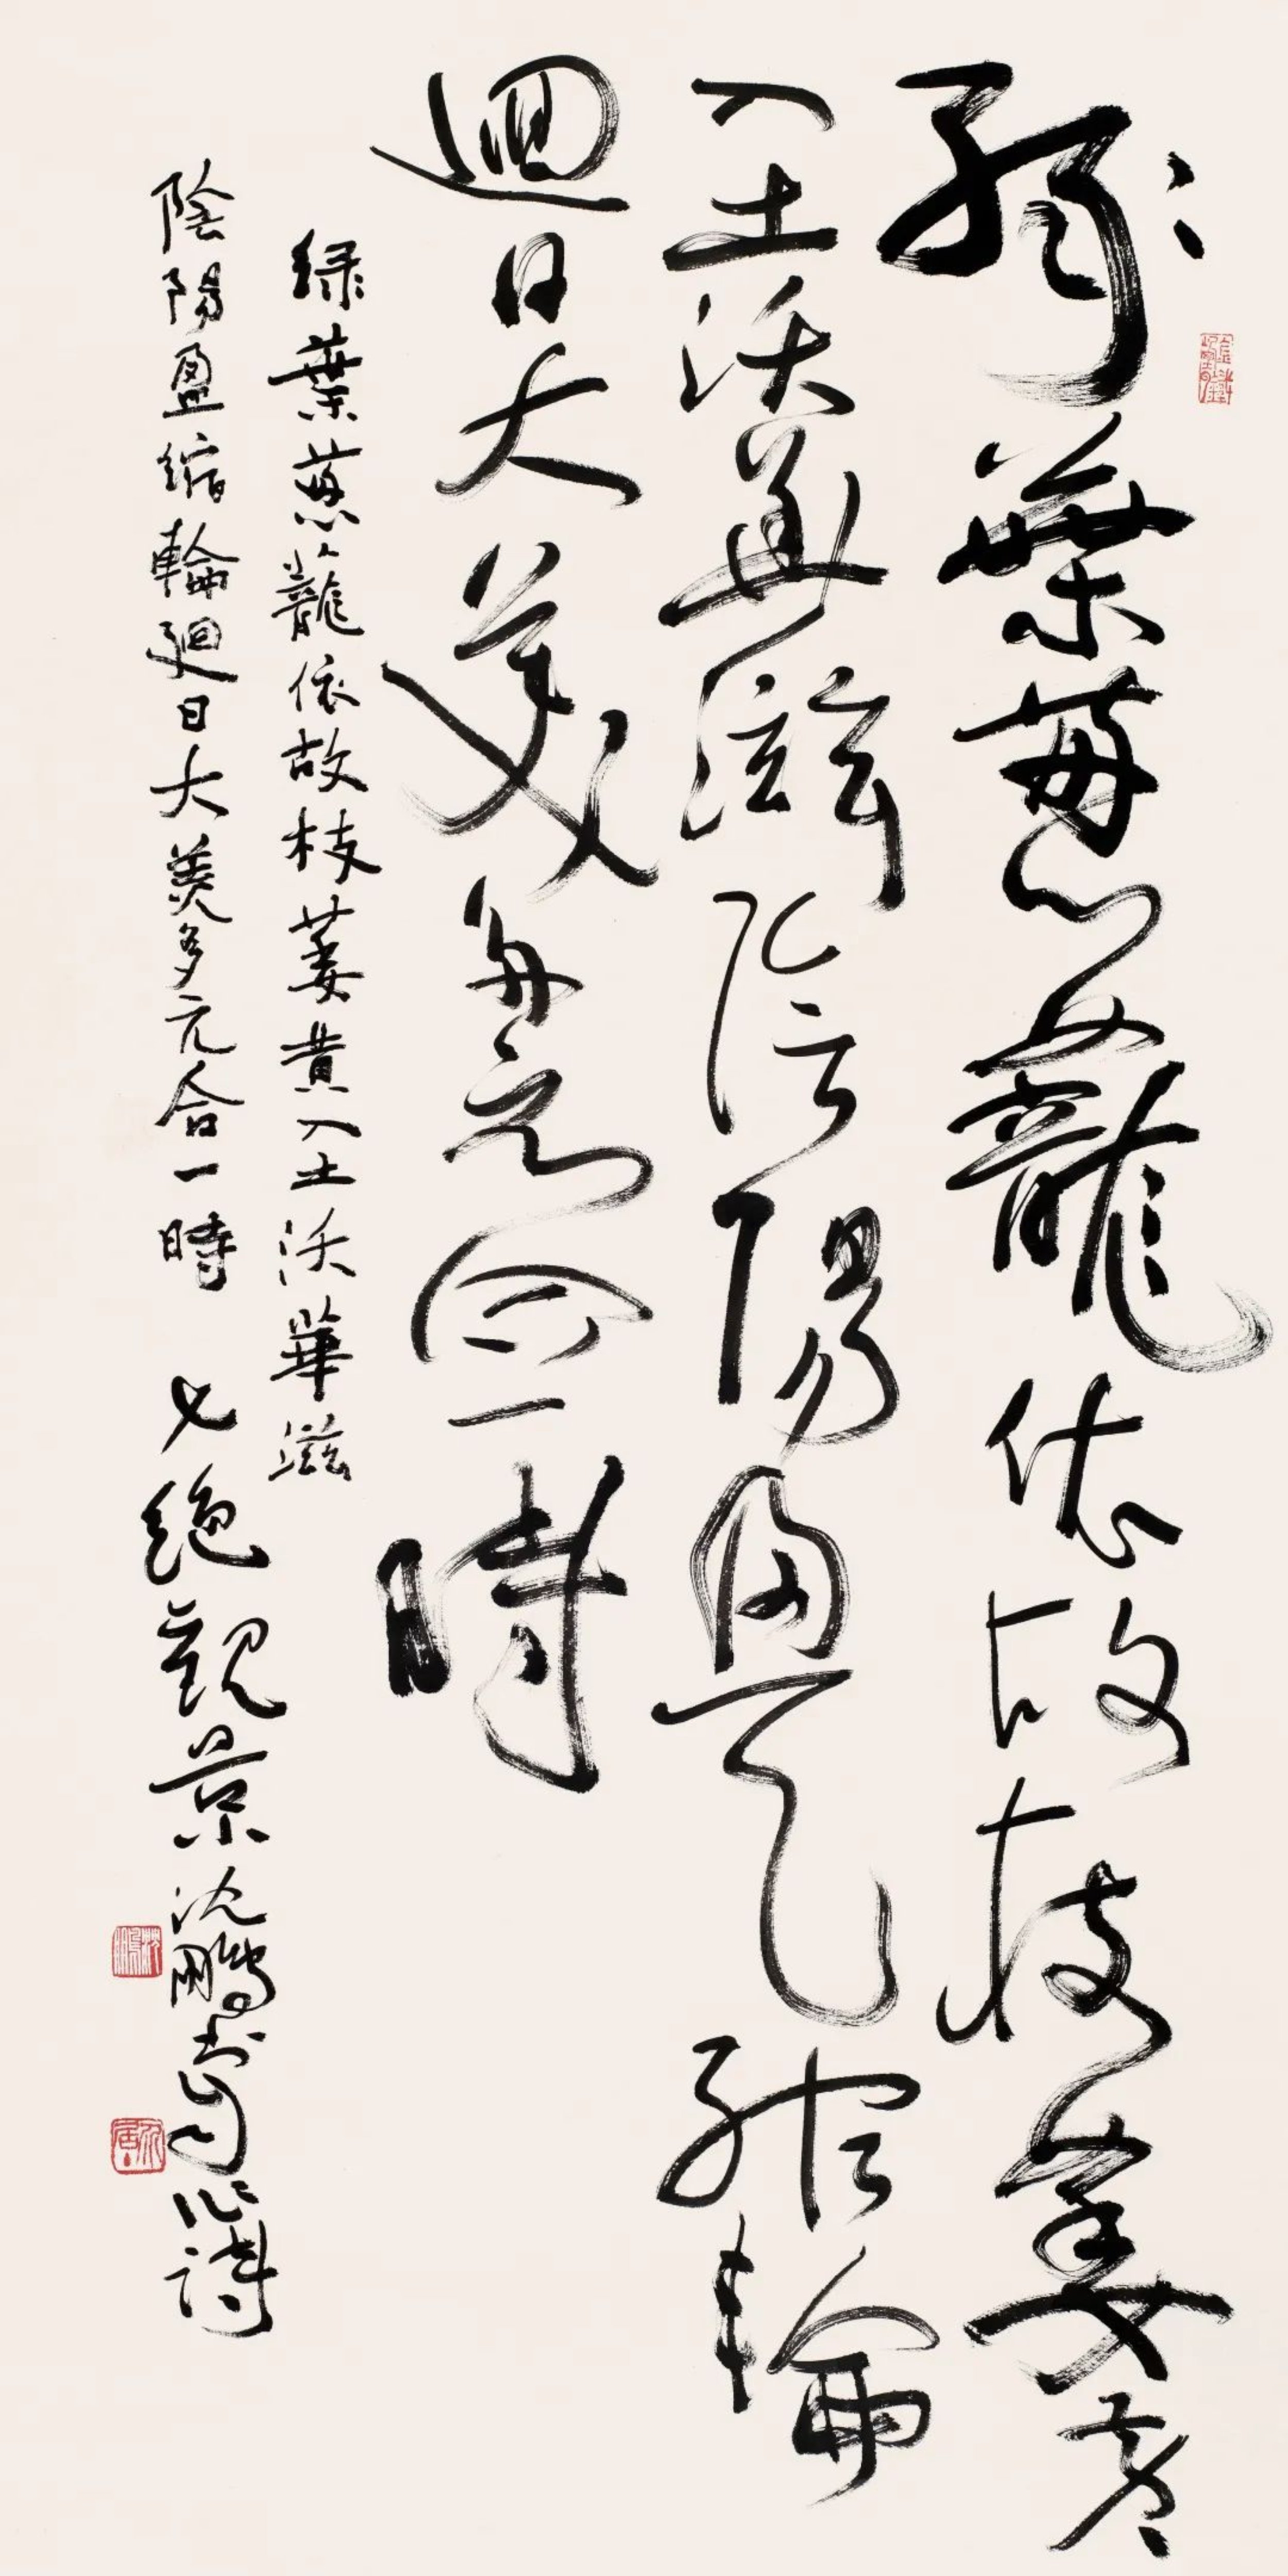 綠葉蔥蘢依故枝萎黃
入土沃華滋陰陽盈縮輪
迴日大美多元合一時
绿葉蔥蘢依故枝萎黄入土沃華滋
陰陽盈缩輪迴日大美多元合一時 七絶觀景沈鵬書自作詩